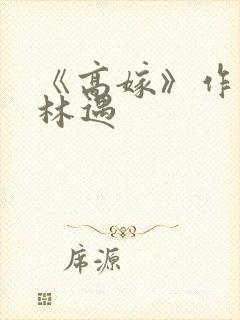 《高嫁》作
林遇
席源